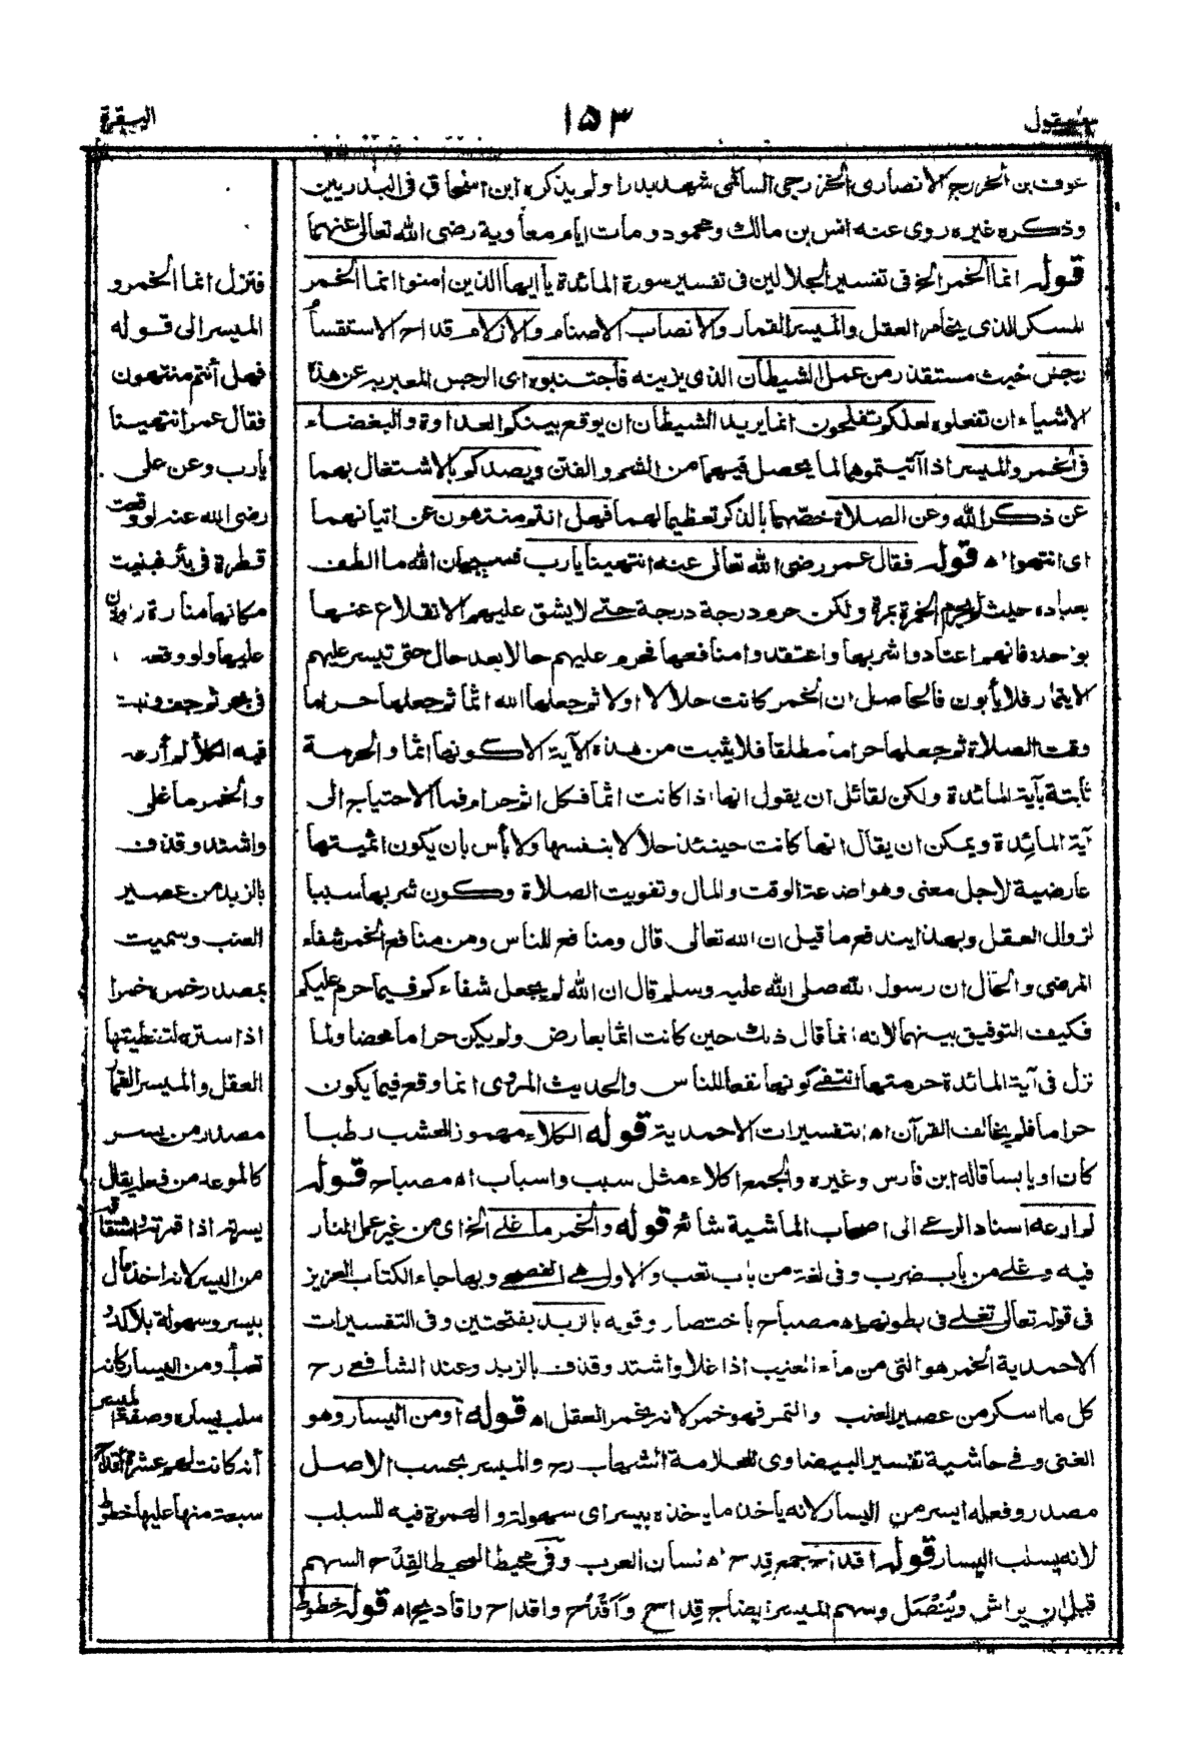 سيقول
١٥٣
البقرة
عوف بن الخزرج الانصارى الخزرجى السالمى شهد بدرا ولم يذكره ابن اسحاق فى البدريين
وذكره غيره روى عنه انس بن مالك ومحمود ومات ايام معاوية رضى الله تعالى عنهما
قوله انما الخمر الخ فى تفسير الجلالين فى تفسير سورة المائدة يا ايها الذين امنوا انما الخمر
المسكر الذى يخامر العقل والميسر القمار والانصاب الاصنام والازلام قداح الاستقسام
رجس خبيث مستقذر من عمل الشيطان الذى يزينه فاجتنبوه اى الرجس المعبر به عن هذه
الاشياء ان تفعلوه لعلكم تفلحون انما يريد الشيطان ان يوقع بينكم العداوة والبغضاء
فى الخمر والميسر اذا آتيتموهما لما يحصل فيهما من الشر والفتن ويصدكم بالاشتغال بهما
عن ذكر الله وعن الصلاة خصهما بالذكر تعظيما لهما فهل انتم منتهون عن اتيانهما
اى انتهوا اه قوله فقال عمر رضى الله تعالى عنه انتهينا يارب فسبحان الله ما الطف
بعباده حيث لم يحرم الخمرة بمرة ولكن حرم درجة درجة حتى لا يشق عليهم الانقلاع عنها
بواحدة فانهم اعتادوا شربها واعتقدوا منافعها فحرم عليهم حالا بعد حال حتى تيسر عليهم
الايتمار فلا يأبون فالحاصل ان الخمر كانت حلالا اولا ثم جعلها الله اثما ثم جعلها حراما
وقت الصلاة ثم جعلها حراما مطلقا فلا يثبت من هذه الآية الا كونها اثما والحرمة
ثابتة بآية المائدة ولكن لقائل ان يقول انها اذا كانت اثما فكل اثم حرام فما الاحتياج الى
آية المائدة ويمكن ان يقال انها كانت حينئذ حلالا بنفسها ولا بأس بان يكون اثميتها
عارضية لاجل معنى وهو اضاعة الوقت والمال وتفويت الصلاة وكون شربها سببا
لزوال العقل وبهذا يندفع ما قيل ان الله تعالى قال ومنافع للناس ومن منافع الخمر شفاء
المرضى والحال ان رسول الله صلى الله عليه وسلم قال ان الله لم يجعل شفاءكم فيما حرم عليكم
فكيف التوفيق بينهما لانه انما قال ذلك حين كانت اثما بعارض ولم يكن حراما محضا ولما
نزل فى آية المائدة حرمتها انتفى كونها نفعا للناس والحديث المروى انما وقع فيما يكون
حراما فلم يخالف القرآن اه تفسيرات الاحمدية قوله الكلاء مهموز العشب رطبا
كان او يابسا قاله ابن فارس وغيره والجمع اكلاء مثل سبب واسباب اه مصباح قوله
لم ارعه اسناد الرعى الى اصحاب الماشية شائع قوله والخمر ما غلى الخ اى من غير عمل النار
فيه وغلى من باب ضرب وفى لغة من باب تعب والاولى هى الفصحى وبها جاء الكتاب العزيز
فى قوله تعالى تغلى فى بطونهم اه مصباح باختصار وقوله بالزبد بفتحتين وفى التفسيرات
الاحمدية الخمر هو التى من ماء العنب اذا غلا واشتد وقذف بالزبد وعند الشافعى رح
كل ما اسكر من عصير العنب والتمر فهو خمر لانه يخمر العقل اه قوله او من اليسار وهو
الغنى وفى حاشية تفسير البيضاوى للعلامة الشهاب رح والميسر بحسب الاصل
مصدر وفعله ايسر من اليسار لانه يأخذ ما يأخذه بيسر اى سهولة والهمزة فيه للسلب
لانه يسلب اليسار قوله اقداح جمع قدح اه لسان العرب وفى محيط المحيط القِدْح السهم
قبل ان يراش ويُنْصَل وسهم الميسر ايضا ج قداح وَأقدُح واقداح واقاديح اه قوله خطوط
فنزل انما الخمر و
الميسر الى قوله
فهل أنتم منتهون
فقال عمر انتهينا
يارب وعن على
رضى الله عنه لو وقعت
قطرة فى بئر فبنيت
مكانها منارة لم أوذن
عليها ولو وقعت
فى بحر ثم جف ونبت
فيه الكلأ لم أرعه
والخمر ما غلى
واشتد وقذف
بالزبد من عصير
العنب وسميت
بمصدر خمره خمرا
اذا ستره لتغطيتها
العقل والميسر القمار
مصدر من يسر
كالموعد من فعله يقال
يسرته اذا قمرته واشتقاقه
من اليسر لانه اخذ مال
بيسر وسهولة بلا كد و
تعب أو من اليسار كانه
سلب يساره وصفة الميسر
أنه كانت لهم عشرة أقداح
سبعة منها عليها خطوط